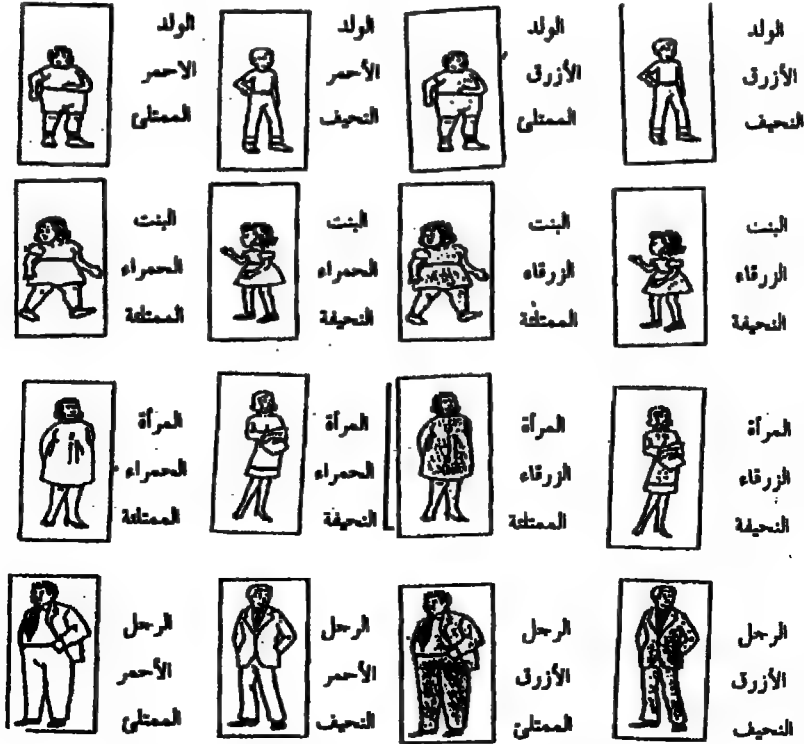 الولد
الأزرق
النحيف
الولد
الأزرق
الممتلئ
الولد
الأحمر
النحيف
الولد
الاحمر
الممتلئ
البنت
الزرقاء
النحيفة
البنت
الزرقاء
الممتلئة
البنت
الحمراء
النحيفة
البنت
الحمراء
الممتلئة
المرأة
الزرقاء
النحيفة
المرأة
الزرقاء
الممتلئة
المرأة
الحمراء
النحيفة
المرأة
الحمراء
الممتلئة
الرجل
الأزرق
النحيف
الرجل
الأزرق
الممتلئ
الرجل
الأحمر
النحيف
الرجل
الأحمر
الممتلئ